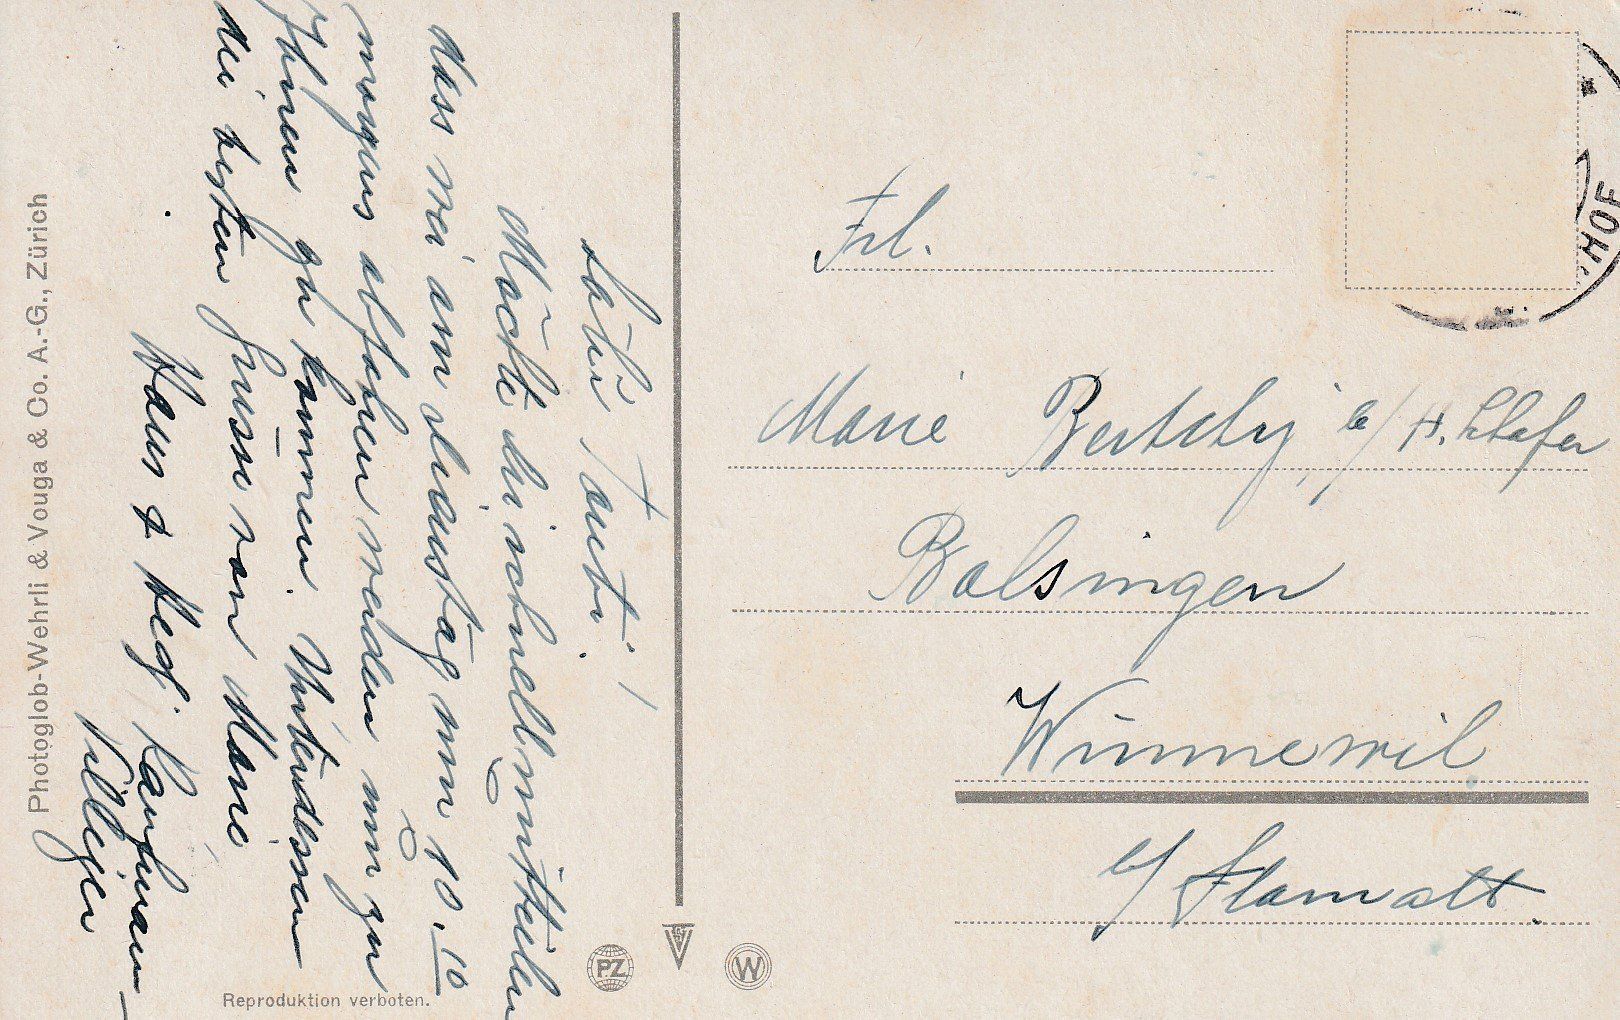 Liebe Tante!
Möchte dir schnell mitteilen
dass wir am dienstag um 10.10
morgens abfahren werden um zu
Ihnen zu kommen. Unterdessen
die besten Grüsse von Marie
Hans & Hedi Kaufman-
Villiger
Frl.
Marie Bertschy, b/ H.
Balsingen
Wünnewil
b/ Flamatt.
HOF
Photoglob-Wehrli & Vouga & Co. A.-G., Zürich
Reproduktion verboten.
PZ
W